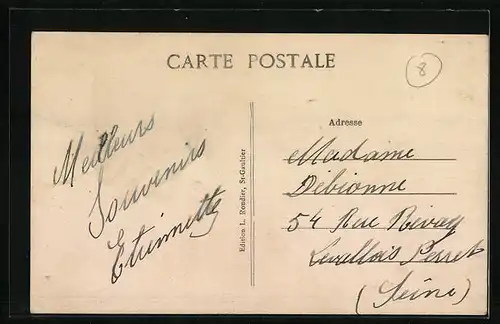 CARTE POSTALE
8
Meilleurs
Souvenirs
Etiennette
Edition L. Rondier, St-Gaultier
Adresse
Madame
Débionne
54 Rue Rivay
Levallois Perret
(Seine)